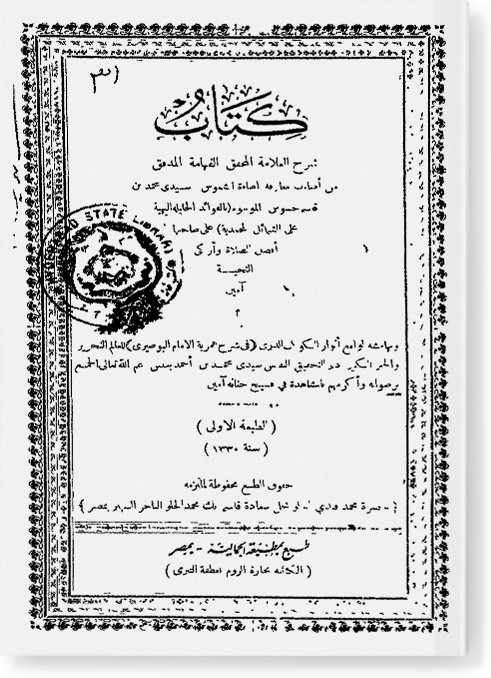 ٣١
كتاب
شرح العلامة المحقق الفهامة المدقق
من أضاءت معارفه اضاءة الشموس سيدى محمد بن
قاسم جسوس الموسوم (بالفوائد الجليلة البهية
على الشمائل المحمدية) على صاحبها
أفضل الصلاة وأزكى
التحية
آمين
م
وبهامشه لوامع أنوار الكوكب الدرى (فى شرح همزية الامام البوصيرى) للعالم النحرير
والحبر الكبير ذو التحقيق النفيس سيدى محمد بن أحمد بنيس عمهم الله تعالى الجميع
برضوانه وأكرمهم بالمشاهدة فى فسيح جنانه آمين
(الطبعة الاولى)
(سنة ١٣٣٠)
حقوق الطبع محفوظة لملتزمه
حضرة محمد نجل سعادة قاسم بك محمد الحلو التاجر الشهير بمصر
طبع بمطبعة الجمالية - بمصر
(الكائنة بحارة الروم بعطفة التترى)
STATE LIBRARY